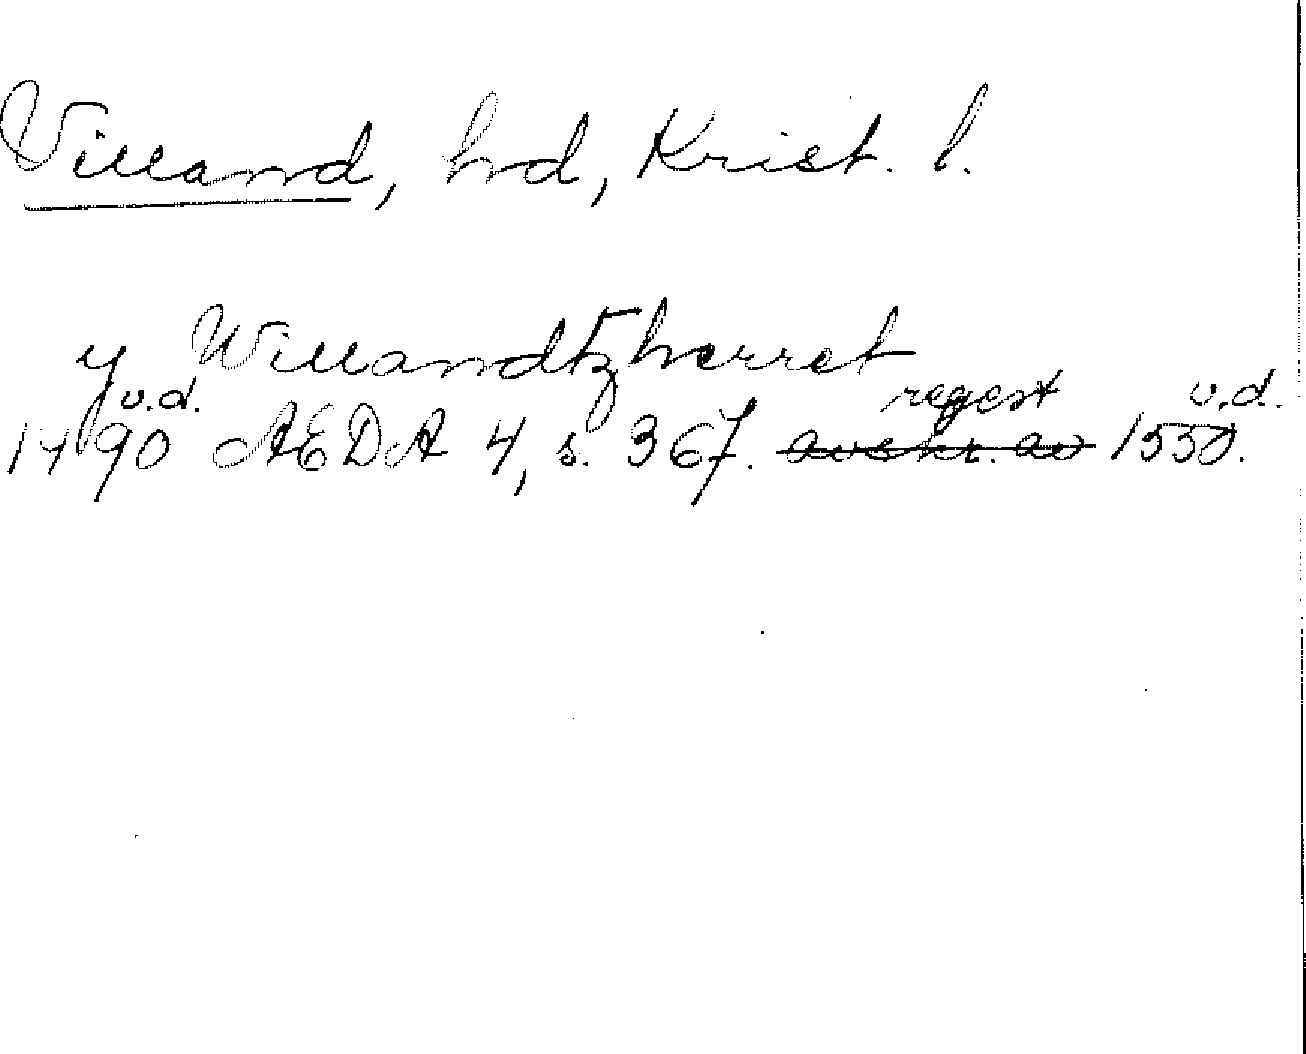 Villand, hd, Krist. l.
y Willandtzherret
u.d. regest u.d.
1490 AEDA 4, s. 367. avskr. av 1550.